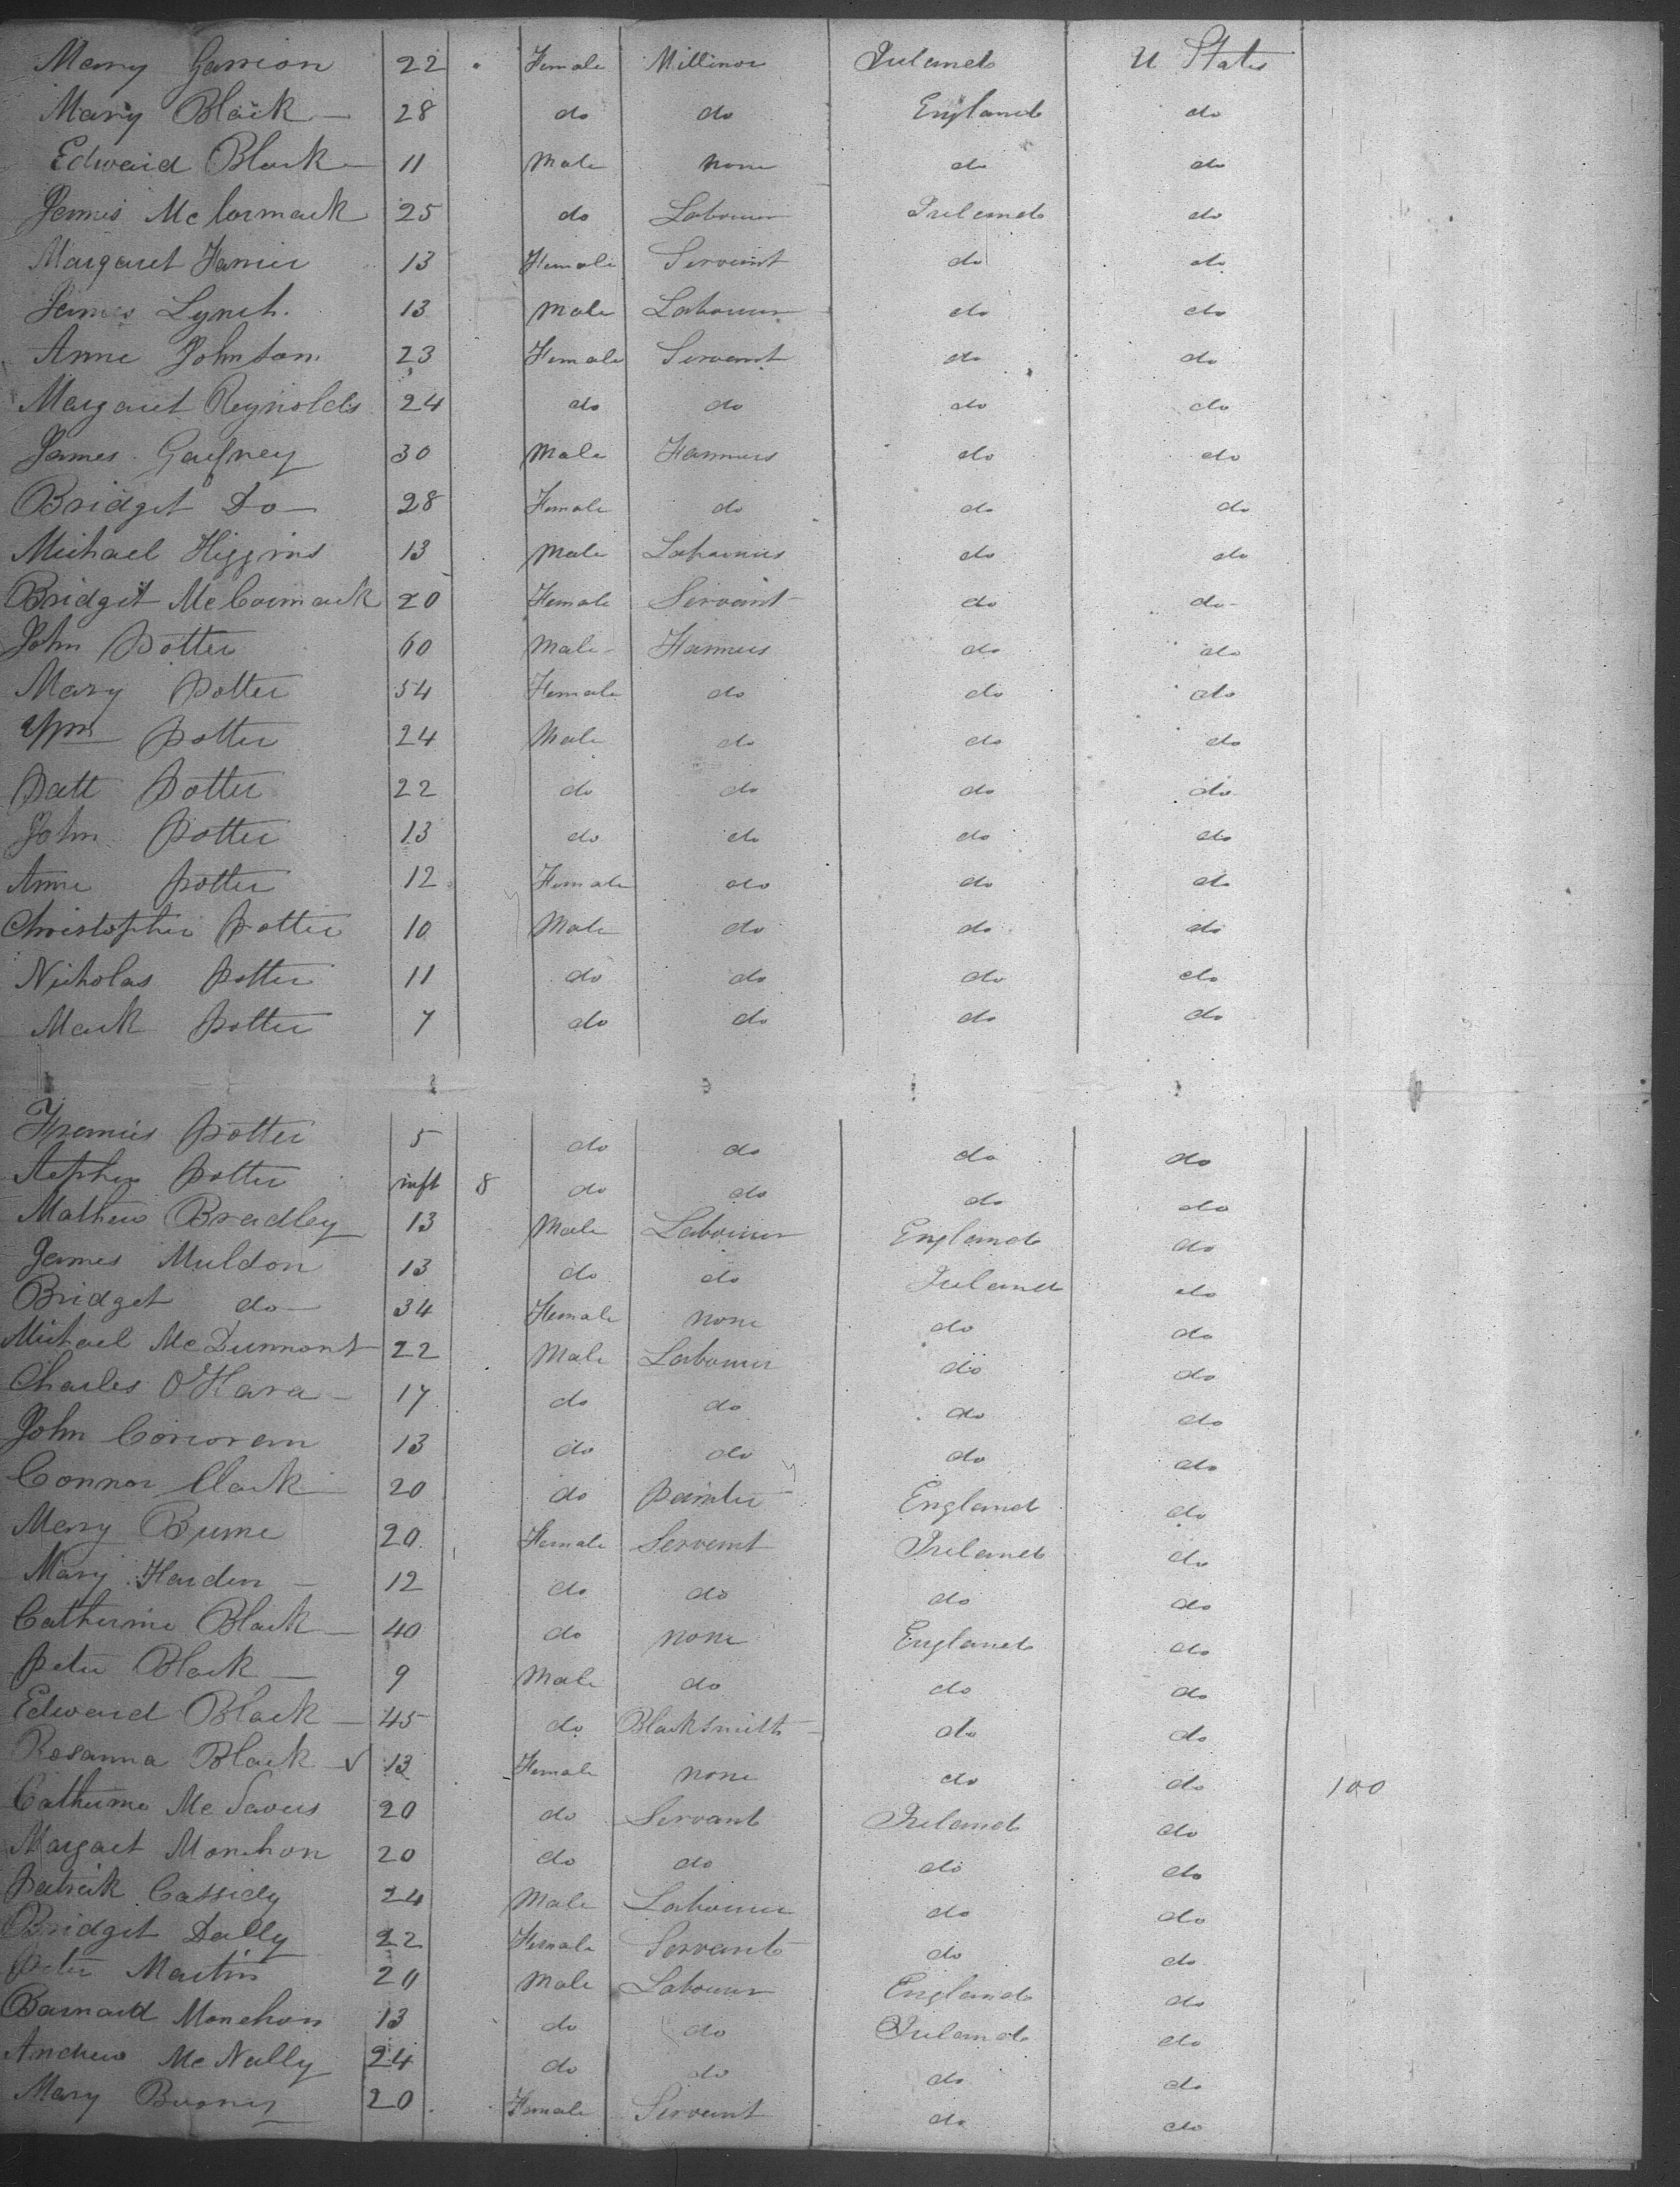 Mary Garrion 22 Female Millinor Ireland U States
Mary Black 28 do do England do
Edward Black 11 Male none do do
James McCormack 25 do Labourer Ireland do
Margaret Farrier 13 Female Servant do do
James Lynch 13 Male Labourer do do
Anne Johnston 23 Female Servant do do
Margaret Reynolds 24 do do do do
James Gaffney 30 Male Farmers do do
Bridget Do 28 Female do do do
Michael Higgins 13 Male Labourers do do
Bridget McCormack 20 Female Servant do do
John Potter 60 Male Farmers do do
Mary Potter 54 Female do do do
Wm Potter 24 Male do do do
Patt Potter 22 do do do do
John Potter 13 do do do do
Anne Potter 12 Female do do do
Christopher Potter 10 Male do do do
Nicholas Potter 11 do do do do
Mark Potter 7 do do do do
Francis Potter 5 do do do do
Stephen Potter inft 8 do do do do
Mathew Bradley 13 Male Labourer England do
James Muldon 13 do do Ireland do
Bridget do 34 Female none do do
Michael McDermont 22 Male Labourer do do
Charles O'Hara 17 do do do do
John Corcoran 13 do do do do
Connor Clark 20 do Painter England do
Mary Burne 20 Female Servant Ireland do
Mary Harden 12 do do do do
Catherine Black 40 do none England do
Peter Black 9 Male do do do
Edward Black 45 do Blacksmith do do
Rosanna Black 13 Female none do do 100
Catherine Mc 20 do Servant Ireland do
Margaret Monehon 20 do do do do
Patrick Cassidy 24 Male Labourer do do
Bridget Dally 22 Female Servant do do
Peter Martin 20 Male Labourer England do
Barnard Monehon 13 do do Ireland do
Andrew McNally 24 do do do do
Mary 20 Female Servant do do